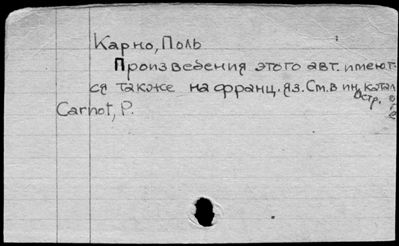 Карно, Поль
Произведения этого авт. имеют-
ся также на франц. яз. См. в ин. катал
Carnot, P.